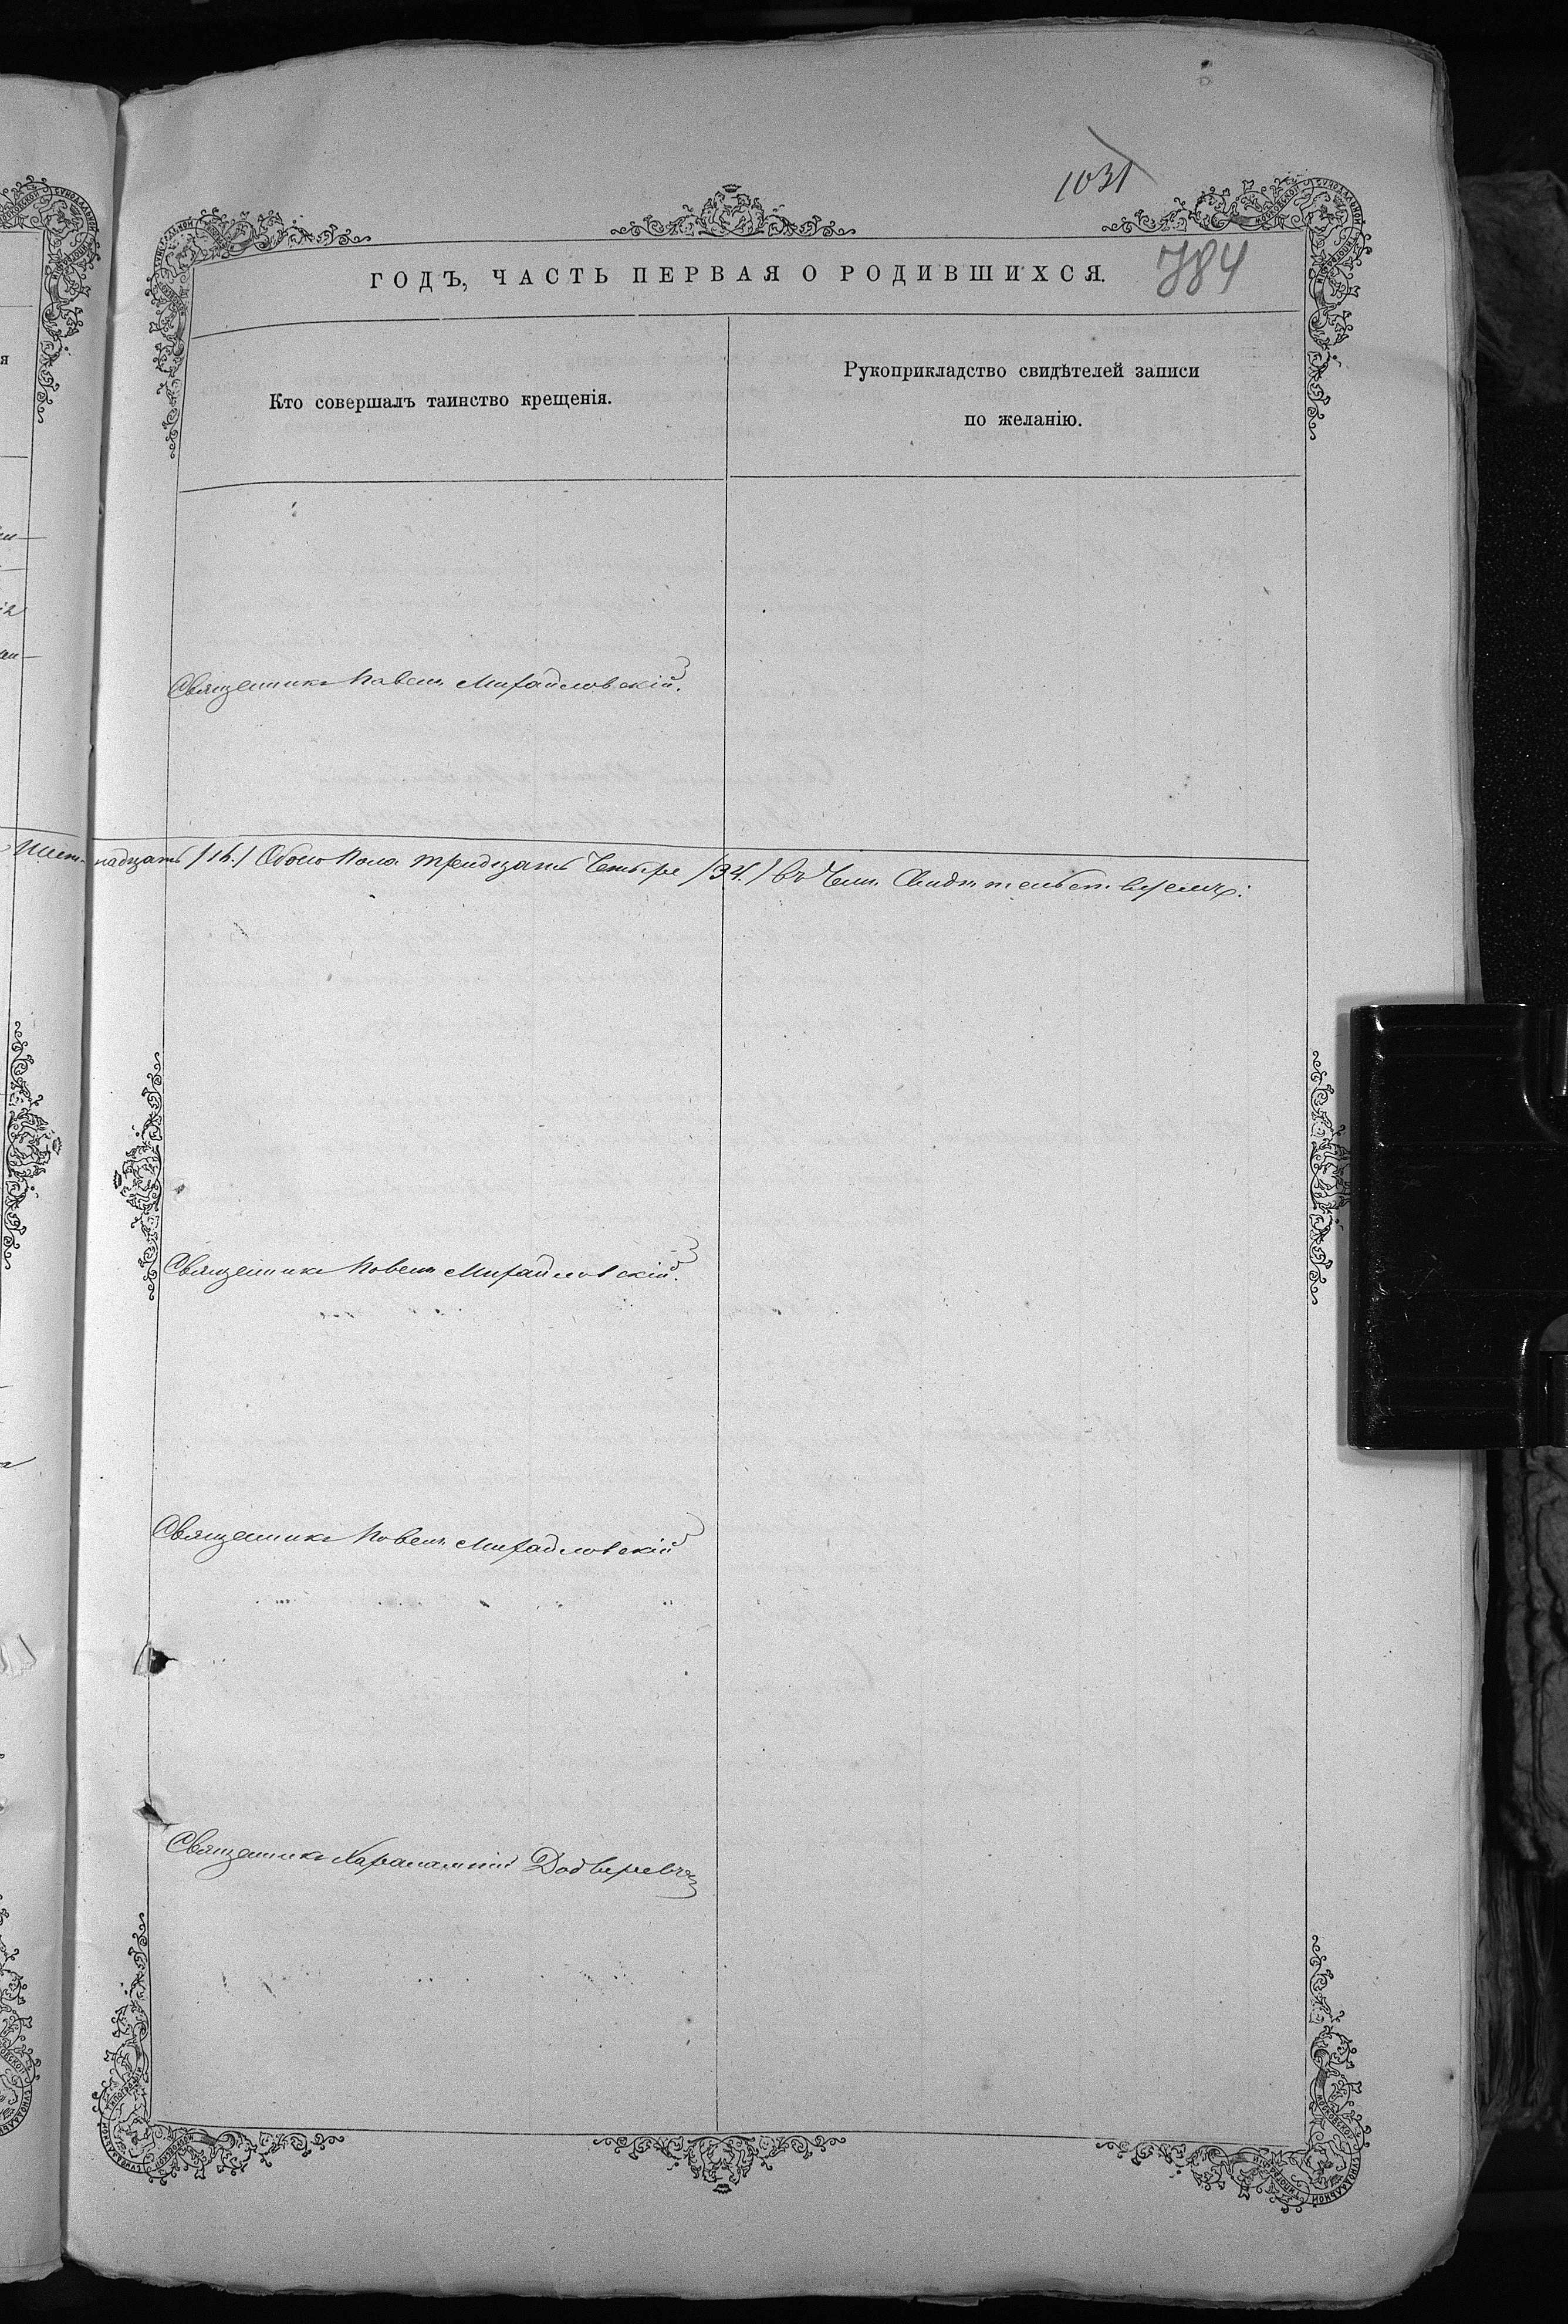 1031
784
ГОДЪ, ЧАСТЬ ПЕРВАЯ О РОДИВШИХСЯ.
Кто совершалъ таинство крещенія.
Рукоприкладство свидѣтелей записи
по желанію.
Священникъ Павелъ Михайловскій.
Шестнадцать /16./ Обоего пола тридцать Четыре /34./ въ Чемъ Свидѣтельствуемъ:
Священникъ Павелъ Михайловскій.
Священникъ Павелъ Михайловскій
Священникъ Харалампій